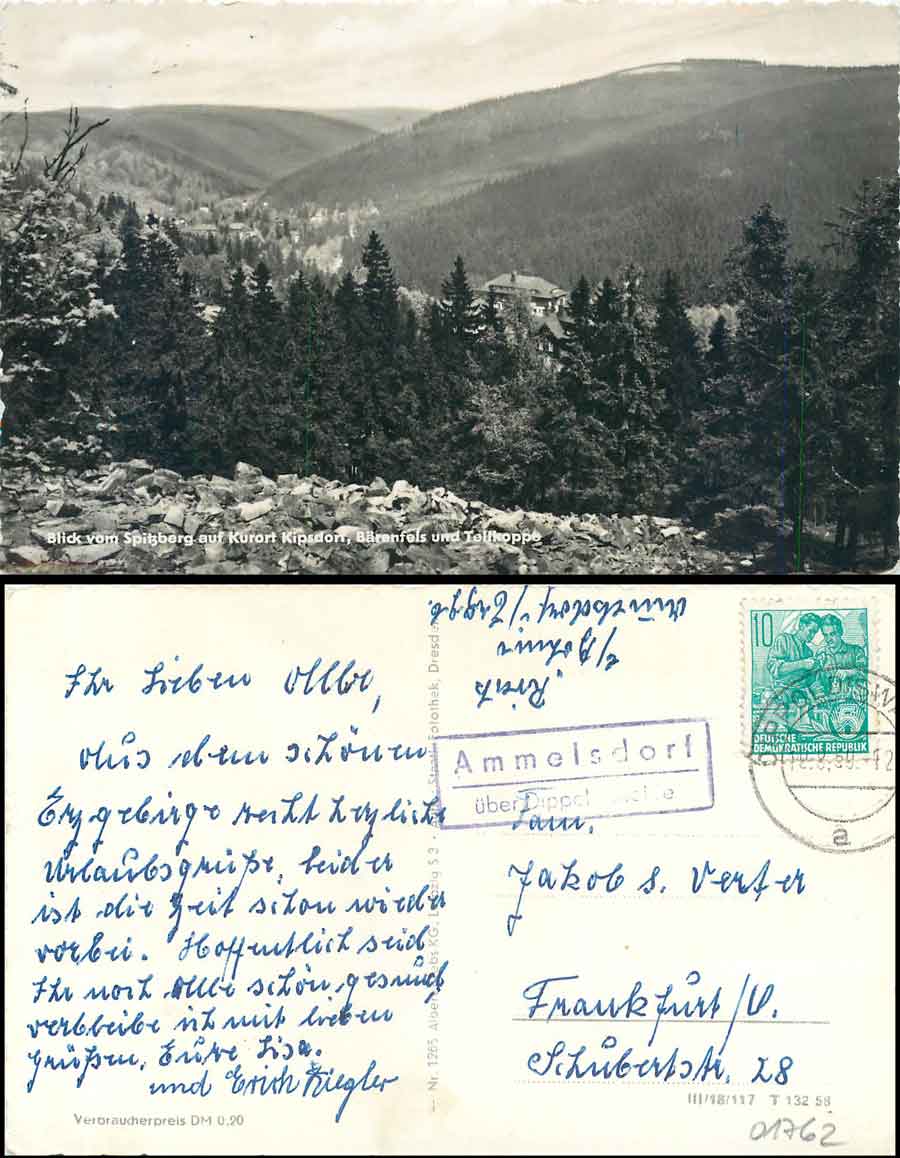 Blick vom Spitzberg auf Kurort Kipsdorf, Bärenfels und Tellkoppe
Ihr lieben Alle,
Aus dem schönen
Erzgebirge recht herzliche
Urlaubsgrüße, leider
ist die Zeit schon wieder
vorbei. Hoffentlich seid
Ihr noch Alle schön gesund,
verbleibe ich mit lieben
Grüßen, Eure Lisa.
und Erich Ziegler
Verbraucherpreis DM 0,20
Nr. 1265 Leipzig S 3 Fotothek, Dresden
Ammelsdorf
über
10
DEUTSCHE
DEMOKRATISCHE REPUBLIK
a
Fam.
Jakob s. Verter
Frankfurt/O.
Schubertstr. 28
III/18/117 T 132 58
01762